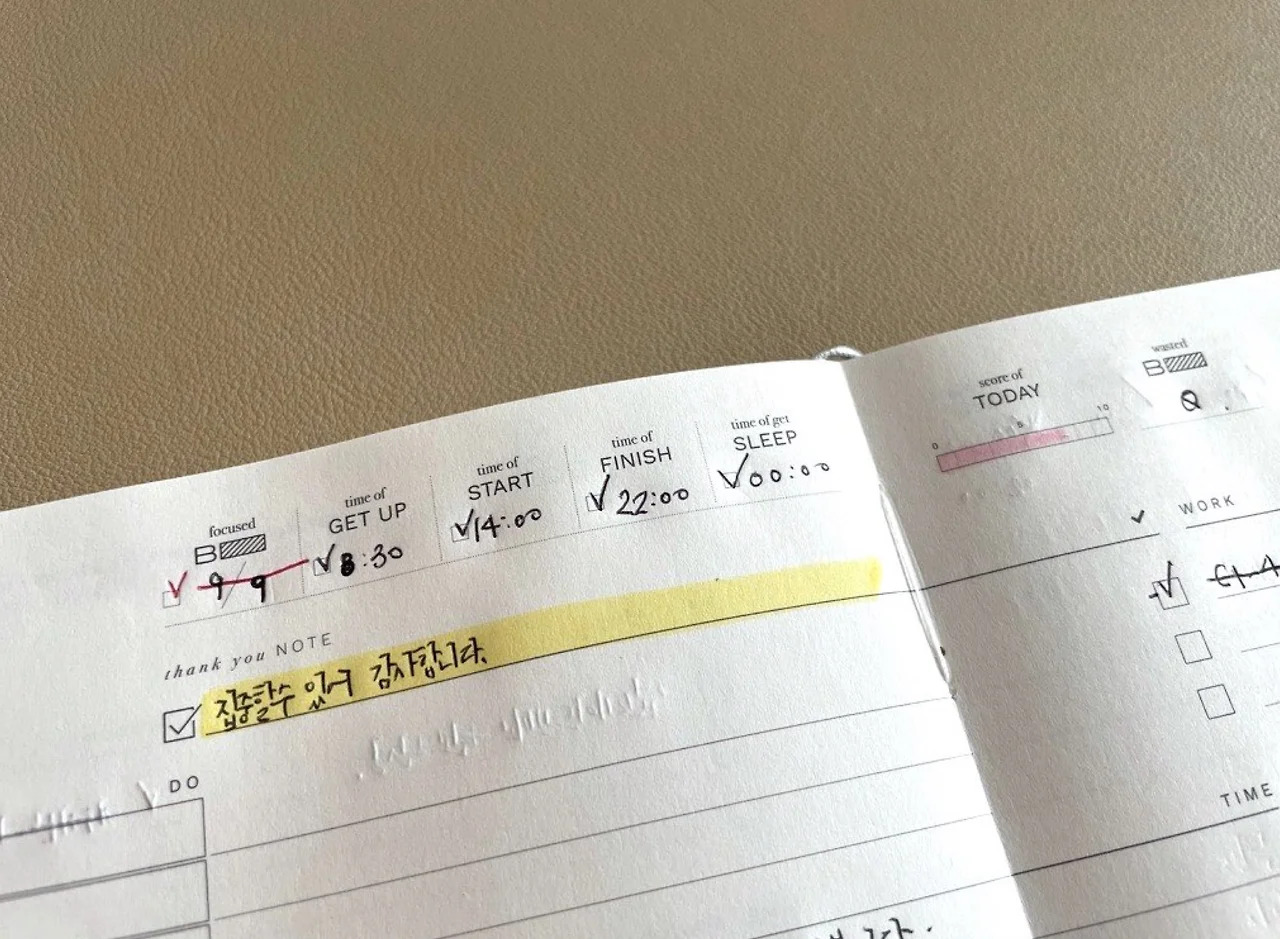 focused
B
9/9
time of
GET UP
8:30
time of
START
14:00
time of
FINISH
22:00
time of get
SLEEP
00:00
thank you NOTE
집중할수 있어 감사합니다.
DO
score of
TODAY
0 5 10
wasted
B
0
WORK
TIME